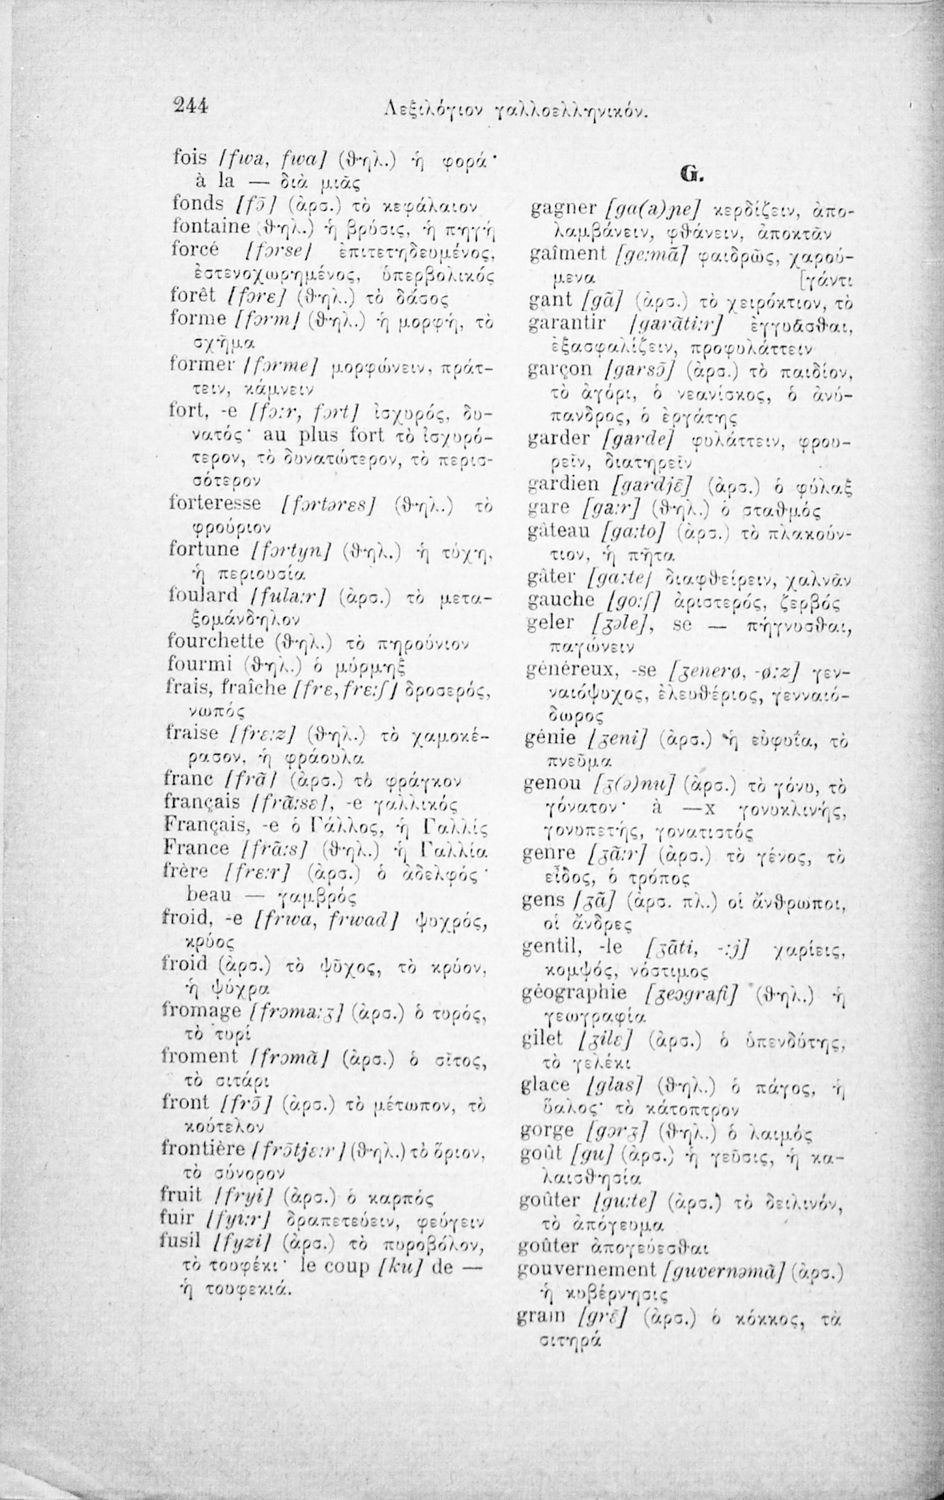 244
Λεξιλόγιον γαλλοελληνικόν.
fois [fwa, fwa] (θηλ.) ἡ φορά·
à la — διὰ μιᾶς
fonds [fɔ̃] (ἀρσ.) τὸ κεφάλαιον
fontaine (θηλ.) ἡ βρύσις, ἡ πηγή
forcé [fɔrse] ἐπιτετηδευμένος,
ἐστενοχωρημένος, ὑπερβολικός
forêt [fɔrɛ] (θηλ.) τὸ δάσος
forme [fɔrm] (θηλ.) ἡ μορφή, τὸ
σχῆμα
former [fɔrme] μορφώνειν, πράτ-
τειν, κάμνειν
fort, -e [fɔ:r, fɔrt] ἰσχυρός, δυ-
νατός· au plus fort τὸ ἰσχυρό-
τερον, τὸ δυνατώτερον, τὸ περισ-
σότερον
forteresse [fɔrtərɛs] (θηλ.) τὸ
φρούριον
fortune [fɔrtyn] (θηλ.) ἡ τύχη,
ἡ περιουσία
foulard [fula:r] (ἀρσ.) τὸ μετα-
ξομάνδηλον
fourchette (θηλ.) τὸ πηρούνιον
fourmi (θηλ.) ὁ μύρμηξ
frais, fraîche [frɛ, frɛ:ʃ] δροσερός,
νωπός
fraise [frɛ:z] (θηλ.) τὸ χαμοκέ-
ρασον, ἡ φράουλα
franc [frɑ̃] (ἀρσ.) τὸ φράγκον
français [frɑ̃:sɛ], -e γαλλικός
Français, -e ὁ Γάλλος, ἡ Γαλλίς
France [frɑ̃:s] (θηλ.) ἡ Γαλλία
frère [frɛ:r] (ἀρσ.) ὁ ἀδελφός·
beau — γαμβρός
froid, -e [frwa, frwad] ψυχρός,
κρύος
froid (ἀρσ.) τὸ ψῦχος, τὸ κρύον,
ἡ ψύχρα
fromage [frɔma:ʒ] (ἀρσ.) ὁ τυρός,
τὸ τυρί
froment [frɔmɑ̃] (ἀρσ.) ὁ σῖτος,
τὸ σιτάρι
front [frɔ̃] (ἀρσ.) τὸ μέτωπον, τὸ
κούτελον
frontière [frɔ̃tjɛ:r] (θηλ.) τὸ ὅριον,
τὸ σύνορον
fruit [fryi] (ἀρσ.) ὁ καρπός
fuir [fyi:r] δραπετεύειν, φεύγειν
fusil [fyzi] (ἀρσ.) τὸ πυροβόλον,
τὸ τουφέκι· le coup [ku] de —
ἡ τουφεκιά.
G.
gagner [ga(ɑ)ɲe] κερδίζειν, ἀπο-
λαμβάνειν, φθάνειν, ἀποκτᾶν
gaîment [ge:mɑ̃] φαιδρῶς, χαρού-
μενα [γάντι
gant [gɑ̃] (ἀρσ.) τὸ χειρόκτιον, τὸ
garantir [garɑ̃ti:r] ἐγγυᾶσθαι,
ἐξασφαλίζειν, προφυλάττειν
garçon [garsɔ̃] (ἀρσ.) τὸ παιδίον,
τὸ ἀγόρι, ὁ νεανίσκος, ὁ ἀνύ-
πανδρος, ὁ ἐργάτης
garder [garde] φυλάττειν, φρου-
ρεῖν, διατηρεῖν
gardien [gardjɛ̃] (ἀρσ.) ὁ φύλαξ
gare [ga:r] (θηλ.) ὁ σταθμός
gâteau [gɑ:to] (ἀρσ.) τὸ πλακούν-
τιον, ἡ πῆτα
gâter [gɑ:te] διαφθείρειν, χαλνᾶν
gauche [go:ʃ] ἀριστερός, ζερβός
geler [ʒəle], se — πήγνυσθαι,
παγώνειν
généreux, -se [ʒenerø, -ø:z] γεν-
ναιόψυχος, ἐλευθέριος, γενναιό-
δωρος
génie [ʒeni] (ἀρσ.) ἡ εὐφυΐα, τὸ
πνεῦμα
genou [ʒ(ə)nu] (ἀρσ.) τὸ γόνυ, τὸ
γόνατον· à —x γονυκλινής,
γονυπετής, γονατιστός
genre [ʒɑ̃:r] (ἀρσ.) τὸ γένος, τὸ
εἶδος, ὁ τρόπος
gens [ʒɑ̃] (ἀρσ. πλ.) οἱ ἄνθρωποι,
οἱ ἄνδρες
gentil, -le [ʒɑ̃ti, -:j] χαρίεις,
κομψός, νόστιμος
géographie [ʒeɔgrafi] (θηλ.) ἡ
γεωγραφία
gilet [ʒilɛ] (ἀρσ.) ὁ ὑπενδύτης,
τὸ γελέκι
glace [glas] (θηλ.) ὁ πάγος, ἡ
ὕαλος· τὸ κάτοπτρον
gorge [gɔrʒ] (θηλ.) ὁ λαιμός
goût [gu] (ἀρσ.) ἡ γεῦσις, ἡ κα-
λαισθησία
goûter [gu:te] (ἀρσ.) τὸ δειλινόν,
τὸ ἀπόγευμα
goûter ἀπογεύεσθαι
gouvernement [guvernəmɑ̃] (ἀρσ.)
ἡ κυβέρνησις
grain [grɛ̃] (ἀρσ.) ὁ κόκκος, τὰ
σιτηρά